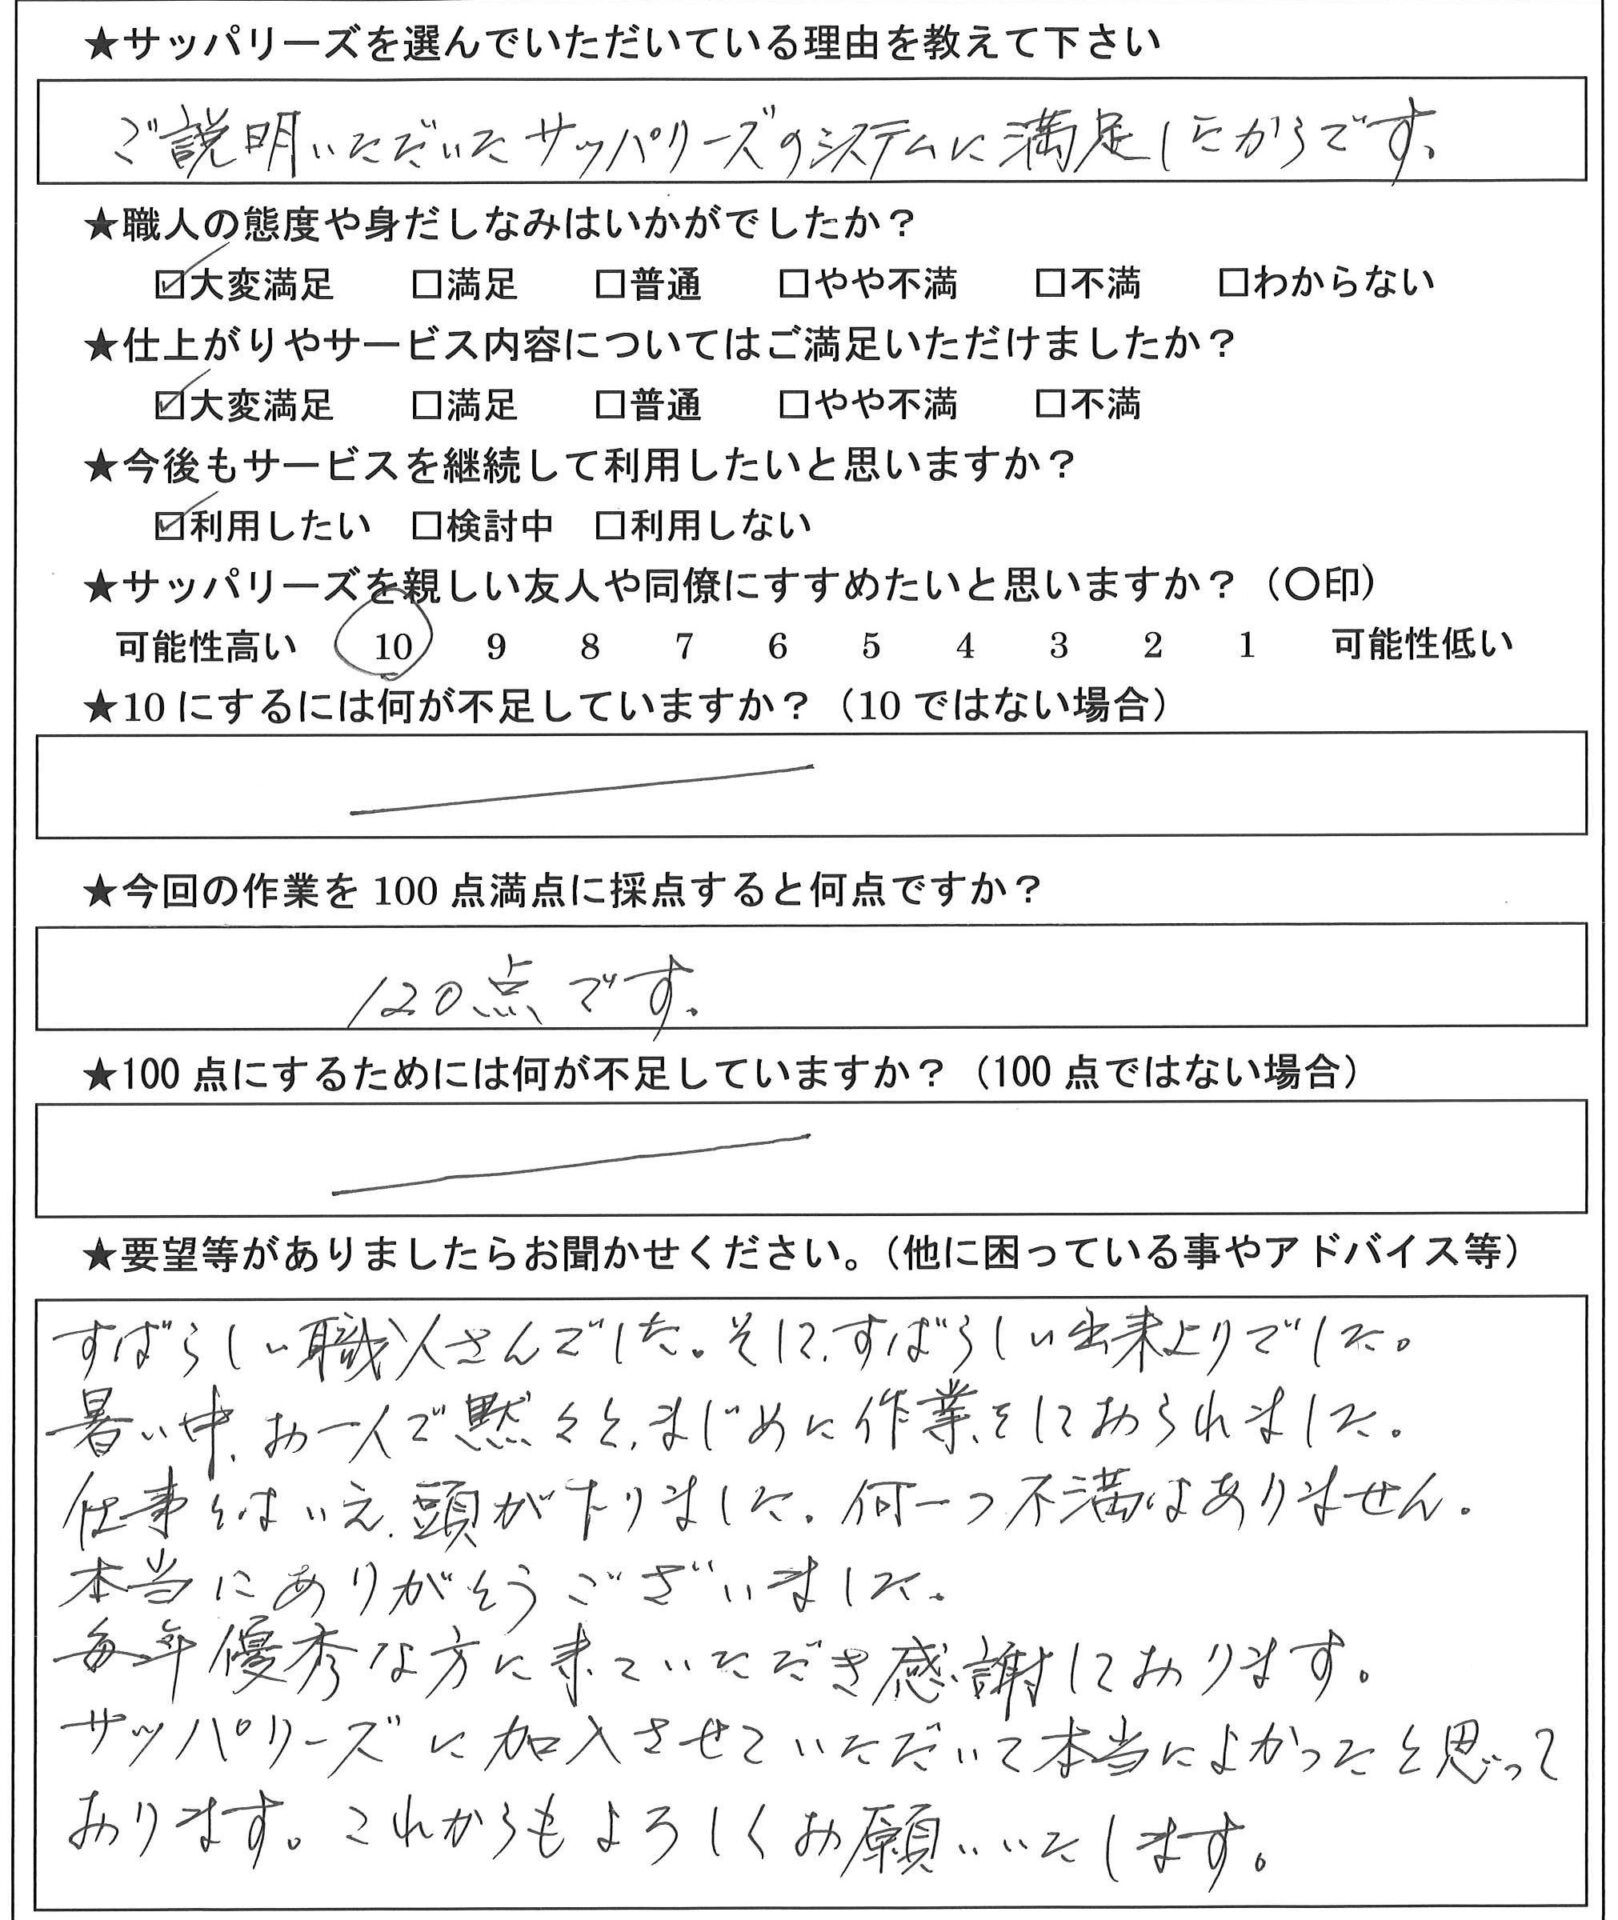 ★サッパリーズを選んでいただいている理由を教えて下さい
ご説明いただいたサッパリーズのシステムに満足したからです。
★職人の態度や身だしなみはいかがでしたか？
☑大変満足 □満足 □普通 □やや不満 □不満 □わからない
★仕上がりやサービス内容についてはご満足いただけましたか？
☑大変満足 □満足 □普通 □やや不満 □不満
★今後もサービスを継続して利用したいと思いますか？
☑利用したい □検討中 □利用しない
★サッパリーズを親しい友人や同僚にすすめたいと思いますか？（〇印）
可能性高い 10 9 8 7 6 5 4 3 2 1 可能性低い
★10にするには何が不足していますか？（10ではない場合）
★今回の作業を100点満点に採点すると何点ですか？
120点です。
★100点にするためには何が不足していますか？（100点ではない場合）
★要望等がありましたらお聞かせください。（他に困っている事やアドバイス等）
すばらしい職人さんでした。そして、すばらしい出来上りでした。
暑い中、お一人で黙々と、まじめに作業をしておられました。
仕事とはいえ、頭が下りました。何一つ不満はありません。
本当にありがとうございました。
毎年優秀な方に来ていただき感謝しております。
サッパリーズに加入させていただいて本当によかったと思って
おります。これからもよろしくお願いいたします。